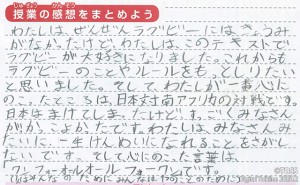 授業の感想をまとめよう
わたしは、ぜんぜんラグビーにはきょうみ
がなかったけど、わたしは、このテキストで
ラグビーが大好きになりました。これからも
ラグビーのことやルールをもっとしりたい
と思いました。そして、わたしが一番心に
のこったところは、日本対南アフリカの対戦です。
日本はまけてしまったけど、すごくみなさん
がかっこよかったです。わたしは、みなさんみ
たいに、一生けんめいになれることをさがし
たいです。そして、心にのこった言葉は、
ワンフォーオールオールフォーワンです。